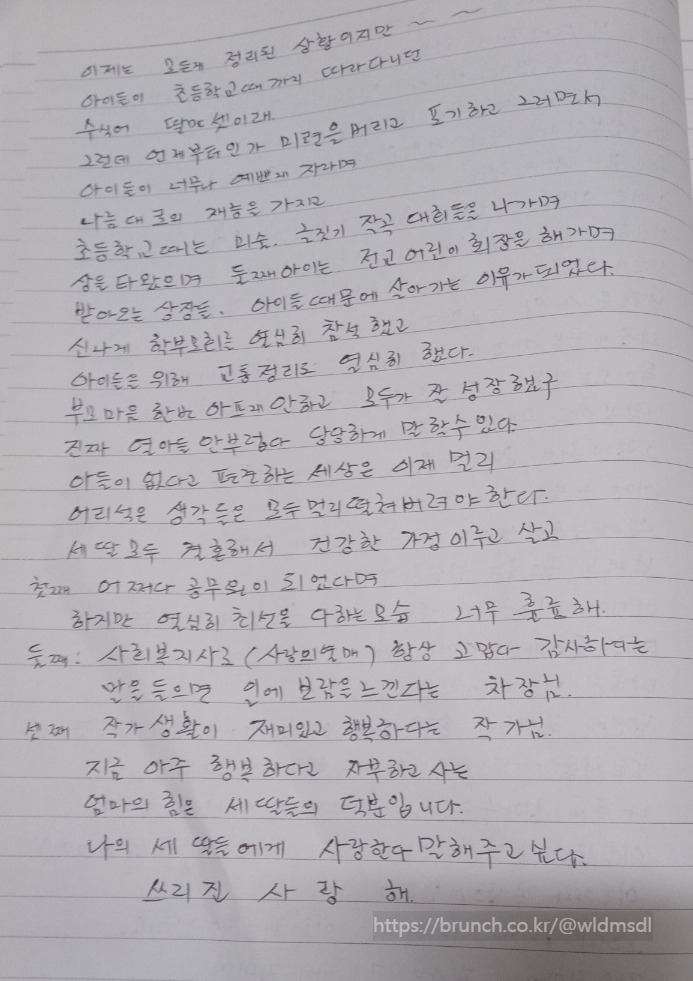 이제는 모든게 정리된 상황이지만 ~ ~
아이들이 초등학교때까지 따라다니던
수식어 딸만 셋이래.
그런데 언제부터인가 미련을 버리고 포기하고 그러면서
아이들이 너무나 예쁘게 자라며
나름대로의 재능을 가지고
초등학교때는 미술. 글짓기 작곡 대회들을 나가며
상을 타왔으며 둘째아이는 전교 어린이 회장을 해가며
받아오는 상장들. 아이들때문에 살아가는 이유가되었다.
신나게 학부모회를 열심히 참석했고
아이들을 위해 교통정리도 열심히 했다.
부모마음 한번 아프게 안하고 모두가 잘 성장했구
진짜 열아들 안부럽다 당당하게 말할수있다
아들이 없다고 하는 세상은 이제 멀리
어리석은 생각들은 모두멀리떨쳐버려야한다.
세딸모두 결혼해서 건강한 가정이루고 살고
첫째 어쩌다 공무원이 되었다며
하지만 열심히 최선을 다하는모습 너무 훌륭해.
둘째: 사회복지사로 (사랑의열매) 항상 고맙다 감사하다는
말을들으면 일에 보람을느낀다는 차장님.
셋째 작가생활이 재미있고 행복하다는 작가님.
지금 아주 행복하다고 자부하고사는
엄마의 힘은 세딸들의 덕분입니다.
나의 세 딸들에게 사랑한다 말해주고 싶다.
쓰리진 사랑해.
https://brunch.co.kr/@wldmsdl